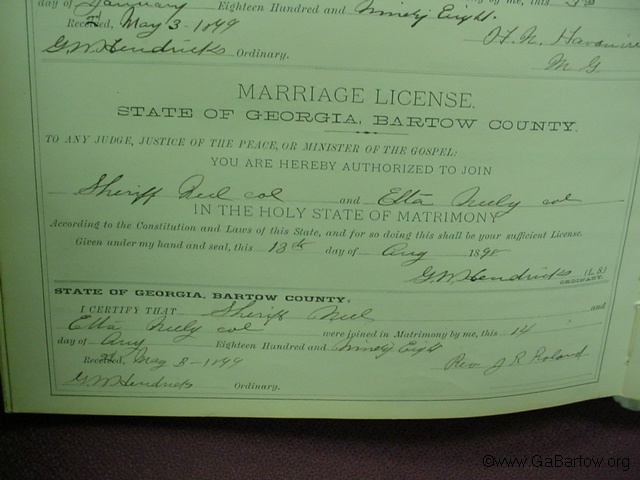 day of January Eighteen Hundred and Ninety Eight.
Received, May 3-1899
G.W. Hendricks Ordinary.
M G
MARRIAGE LICENSE.
STATE OF GEORGIA, BARTOW COUNTY.
TO ANY JUDGE, JUSTICE OF THE PEACE, OR MINISTER OF THE GOSPEL:
YOU ARE HEREBY AUTHORIZED TO JOIN
Sheriff Neel col and Etta Neely col
IN THE HOLY STATE OF MATRIMONY
According to the Constitution and Laws of this State, and for so doing this shall be your sufficient License.
Given under my hand and seal, this 13th day of Aug 1898
G.W. Hendricks (L. S.)
ORDINARY.
STATE OF GEORGIA, BARTOW COUNTY.
I CERTIFY THAT Sheriff Neel and
Etta Neely col were joined in Matrimony by me, this 14
day of Aug Eighteen Hundred and Ninety Eight
Rev J R Roland
Received, May 8-1899
G.W. Hendricks Ordinary.
©www.GaBartow.org